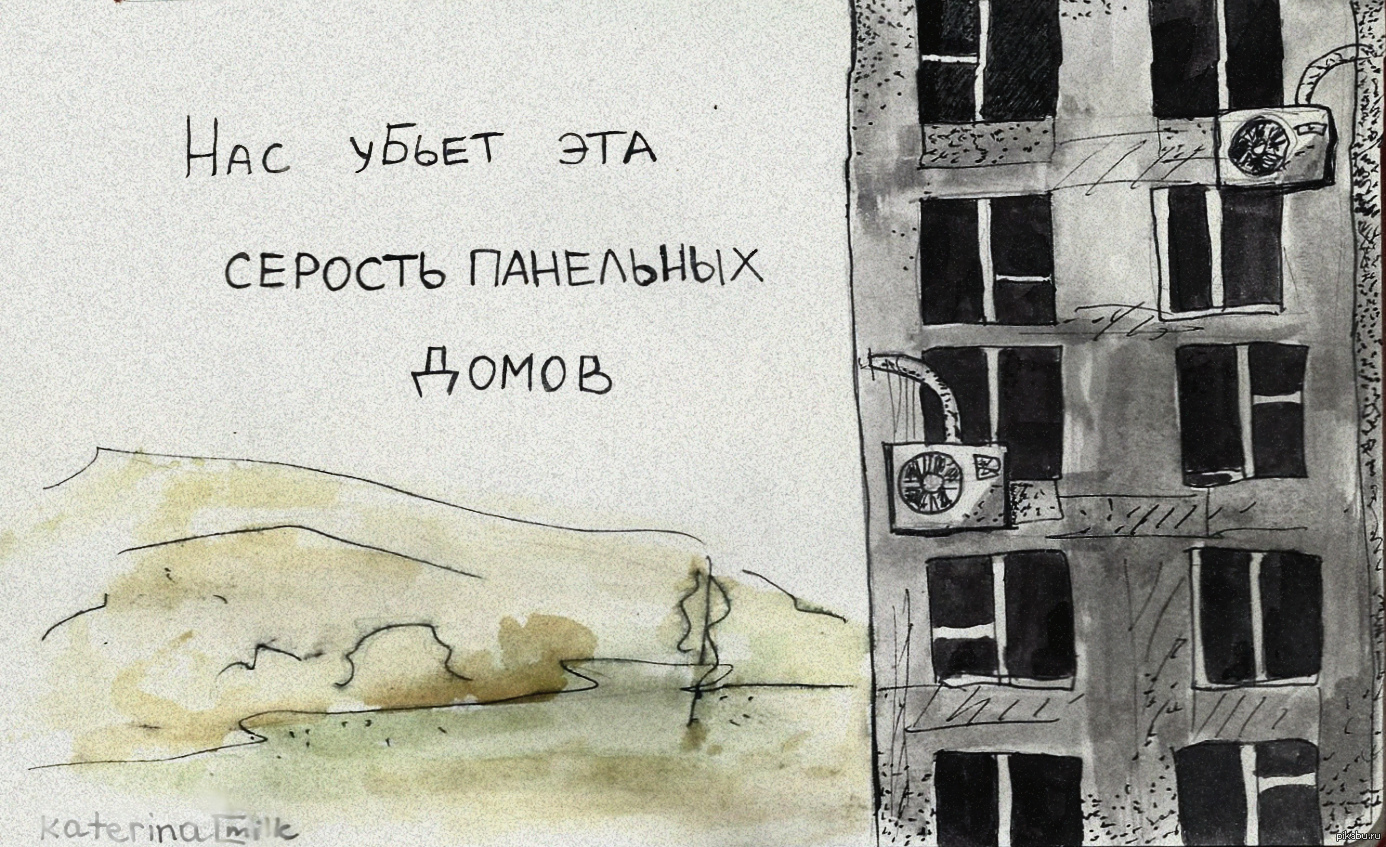 Нас убьет эта
серость панельных
домов
katerina milk
pikabu.ru